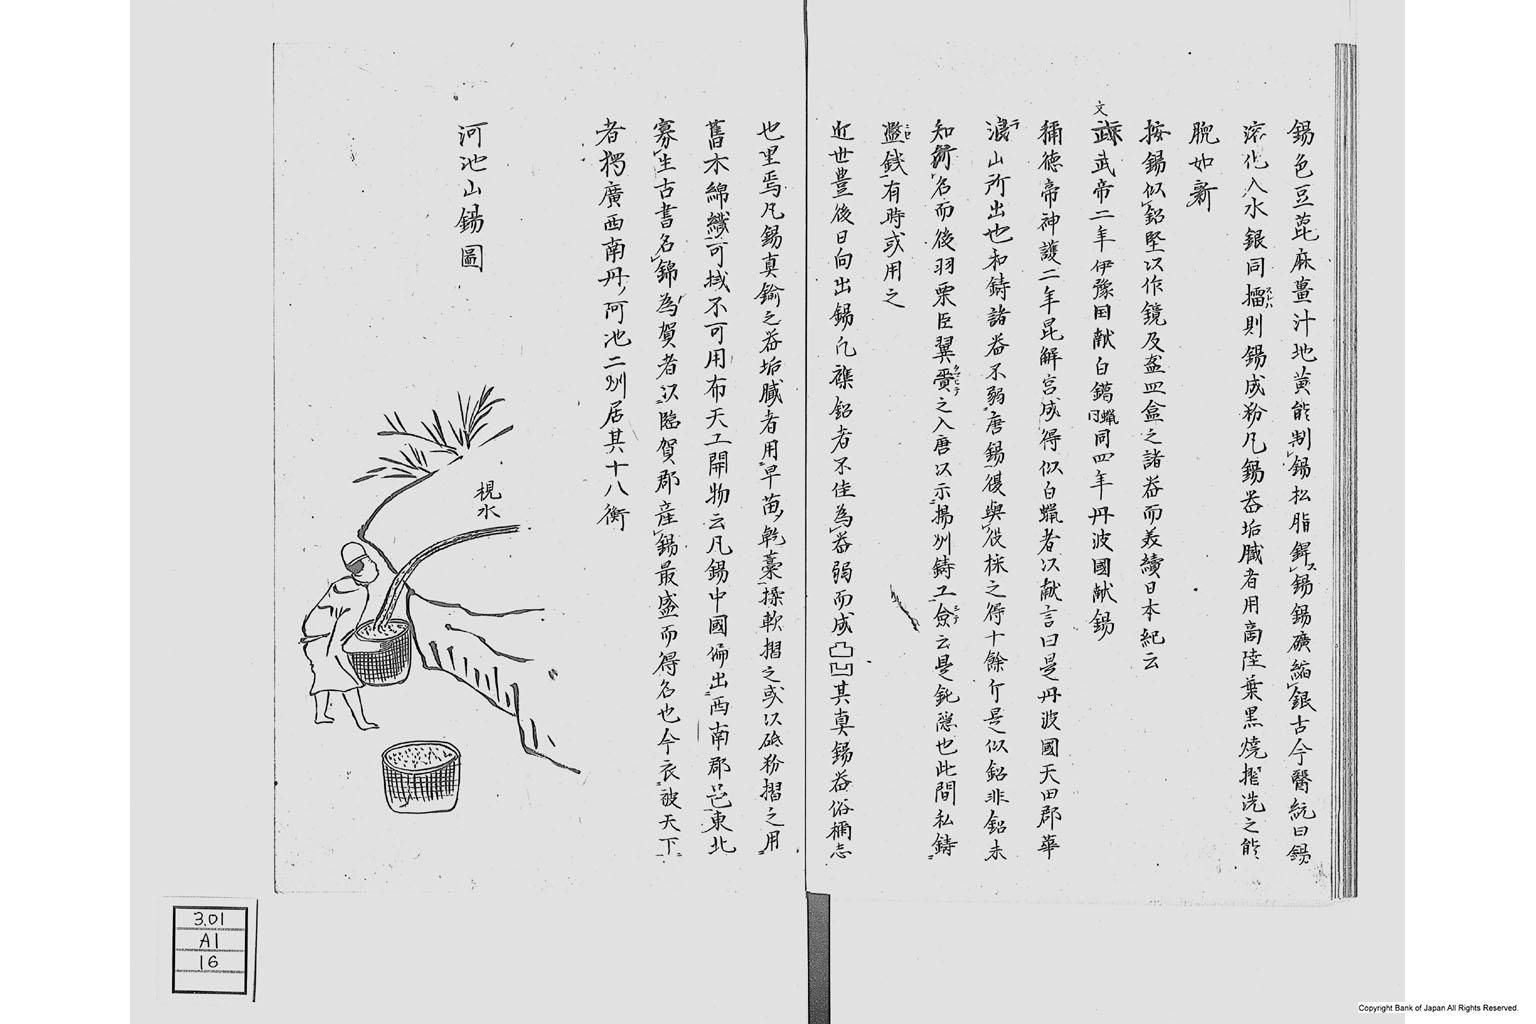 錫色豆蓖麻薑汁地黄能制錫松脂銲ス錫錫礦縮銀古今醫統曰錫
滾化入水銀同擂則錫成粉凡錫器垢膩者用商陸葉黒燒摧洗之能
脱如新
按錫似鉛堅以作鏡及盔皿盒之諸器而美續日本紀云
文武武帝二年伊豫国献白鑞同四年丹波國献錫
稱德帝神護二年昆解宮成得似白蠟者以献言曰是丹波國天田郡華
浪山所出也和鋳諸器不弱唐錫復與役採之得十餘斤是似鉛非鉛未
知所名而後羽栗臣翼賷之入唐以示揚州鋳工僉云是鈍隠也此間私鋳
濫錢有時或用之
近世豊後日向出錫凡襍鉛者不佳為器弱而成凸凹其真錫器俗稱志
也里焉凡錫真鍮之器垢膩者用早苗乾藁揉軟摺之或以砥粉摺之用
舊木綿纖可拭不可用布天工開物云凡錫中國偏出西南郡邑東北
寡生古書名錫為賀者以臨賀郡産錫最盛而得名也今衣被天下
者獨廣西南丹河池二州居其十八衡
河池山錫圖
梘水
3.01
A1
16
Copyright Bank of Japan All Rights Reserved.